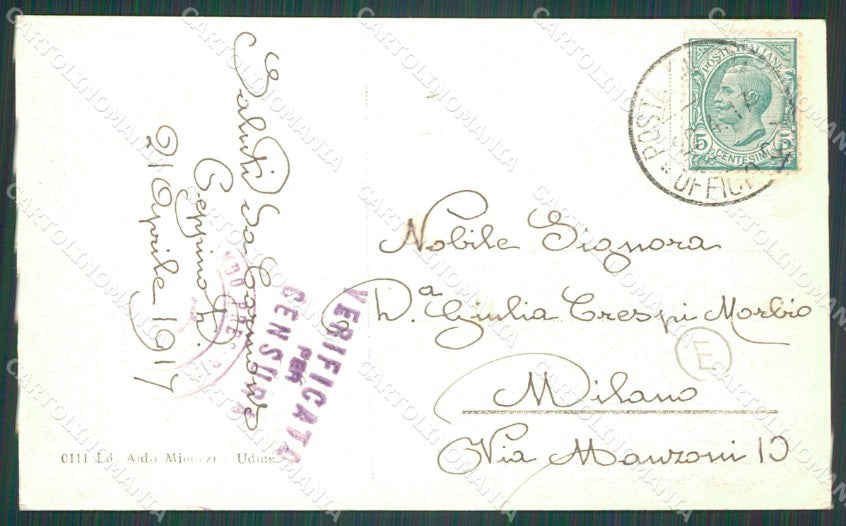 Saluti da Cormons
Peppino
21 Aprile 1917
VERIFICATA
PER
CENSURA
0111 Ed. Aido Minuzzi - Udine
POSTE ITALIANE
5 CENTESIMI 5
POSTA
UFFICIO
Nobile Signora
D.a Giulia Crespi Morbio
E
Milano
Via Manzoni 10
CARTOLINOMANIA